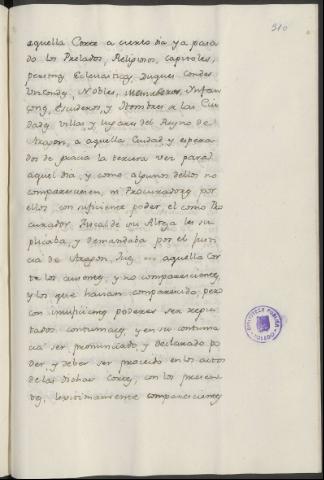 510
aquella Corte a cierto dia ya pasa
do los Prelados, Religiosos, capitoles,
personas Eclesiasticas, Duques Condes
Vizcondes, Nobles, Infan
çones, Escuderos, y Hombres a las Ciu
dades villas y lugares del Reyno de
Aragon, a aquella Ciudad, y espera
dos de gracia la tercera vez para
aquel dia, y como algunos dellos no
compareciesen, ni Procuradores por
ellos con suficiente poder, el como Pro
curador Fiscal de su Alteza les su
plicaba, y demandaba por el Justi
cia de Aragon, Juez en aquella Cor
te los ausentes, y no comparecientes,
y los que havian comparecido, pero
con insuficientes poderes ser repu
tados contumaces, y en su contuma
cia ser pronunciado, y declarado po
der, y deber ser procedido en los actos
de las dichas Cortes, con los presen
tes, legitimamente comparecientes
BIBLIOTECA PUBLICA
TOLEDO